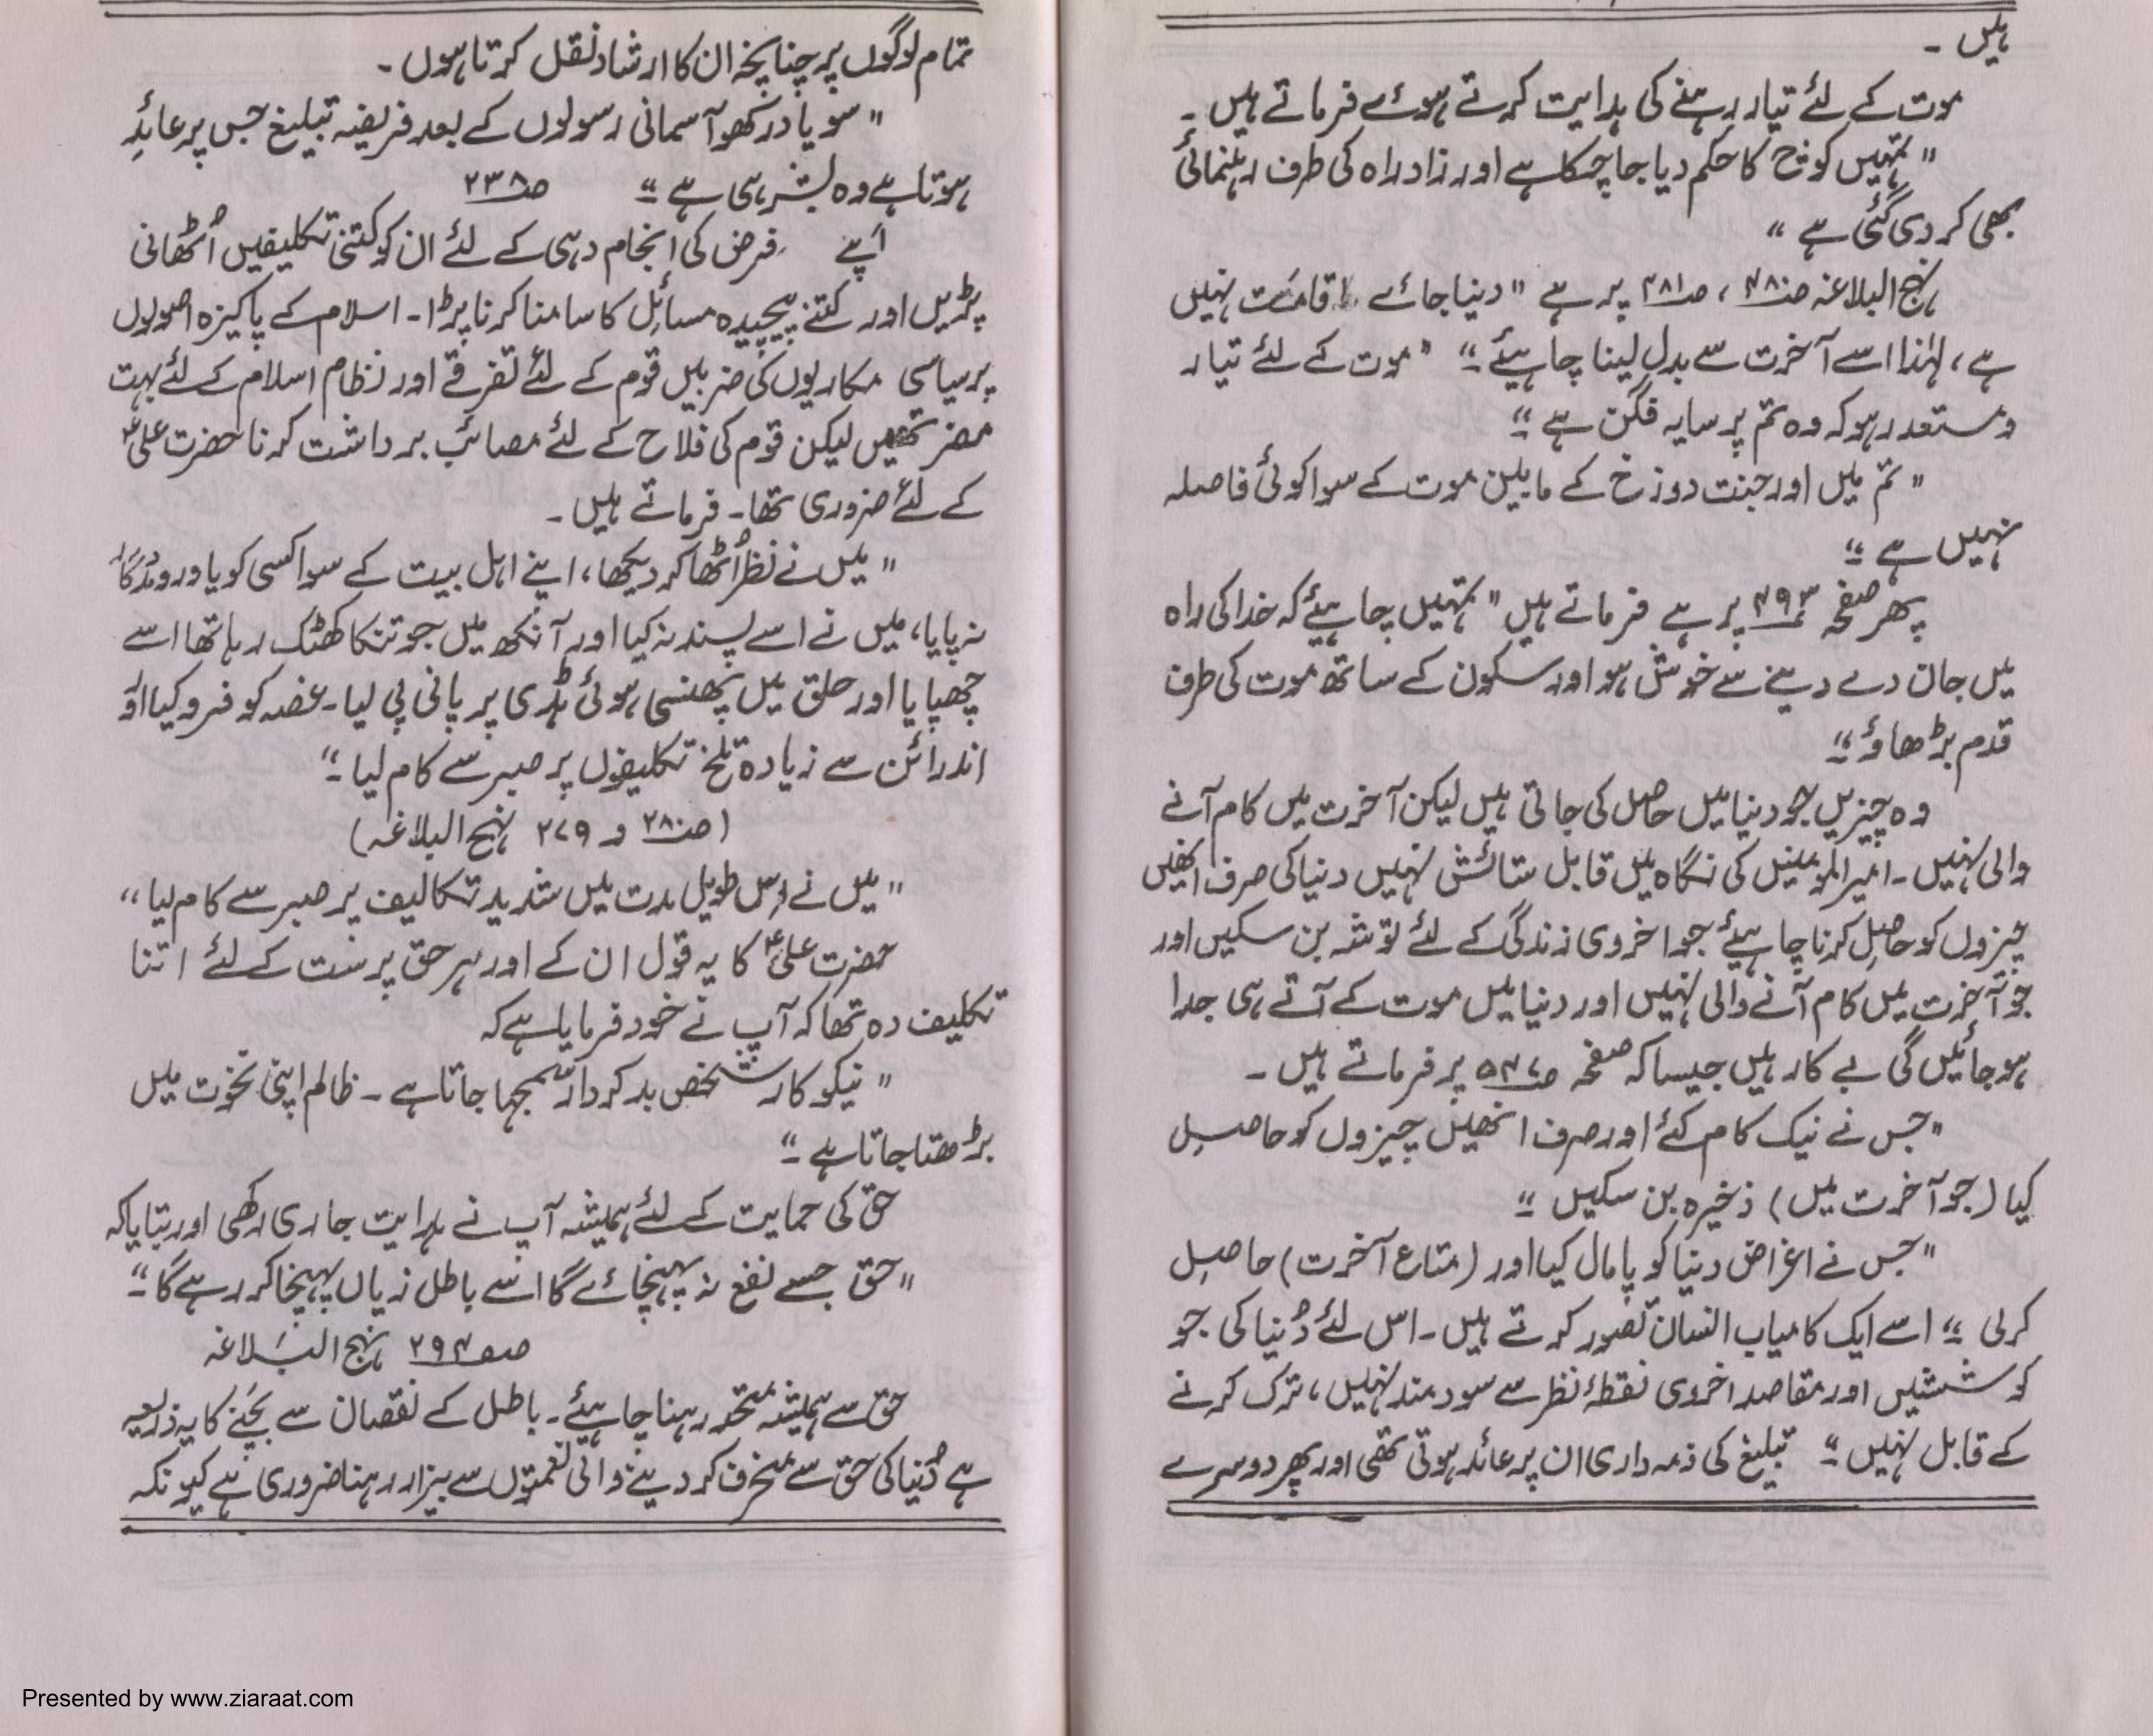 ہیں ۔
موت کے لئے تیار رہنے کی ہدایت کرتے ہوئے فرماتے ہیں ۔
" تمہیں کوچ کا حکم دیا جا چکا ہے اور زاد راہ کی طرف رہنمائی
بھی کر دی گئی ہے "
نہج البلاغہ صـ۴۸۰ ، صـ۴۸۱ پر ہے " دنیا جائے اقامت نہیں
ہے ، لہٰذا اسے آخرت سے بدل لینا چاہیئے ۔" " موت کے لئے تیار
و مستعد رہو کہ وہ تم پر سایہ فگن ہے ۔"
" تم میں اور جنت دوزخ کے مابین موت کے سوا کوئی فاصلہ
نہیں ہے ۔"
پھر صفحہ ۴۹۳ پر ہے فرماتے ہیں " تمہیں چاہیئے کہ خدا کی راہ
میں جان دے دینے سے خوش ہو اور سکون کے ساتھ موت کی طرف
قدم بڑھاؤ ۔"
وہ چیزیں جو دنیا میں حاصل کی جاتی ہیں لیکن آخرت میں کام آنے
والی نہیں ۔ امیر المومنین کی نگاہ میں قابل ستائش نہیں دنیا کی صرف انھیں
چیزوں کو حاصل کرنا چاہیئے جو اخروی زندگی کے لئے توشہ بن سکیں اور
جو آخرت میں کام آنے والی نہیں اور دنیا میں موت کے آتے ہی جدا
ہو جائیں گی بے کار ہیں جیسا کہ صفحہ صـ۵۴۷ پر فرماتے ہیں ۔
" جس نے نیک کام کئے اور صرف انھیں چیزوں کو حاصل
کیا (جو آخرت میں) ذخیرہ بن سکیں ۔"
" جس نے اغراض دنیا کو پامال کیا اور (متاع آخرت) حاصل
کرلی ۔" اسے ایک کامیاب انسان تصور کرتے ہیں ۔ اس لئے دُنیا کی جو
کوششیں اور مقاصد اخروی نقطۂ نظر سے سود مند نہیں ، ترک کرنے
کے قابل نہیں ۔" تبلیغ کی ذمہ داری ان پر عائد ہوتی تھی اور پھر دوسرے
تمام لوگوں پر چنانچہ ان کا ارشاد نقل کرتا ہوں ۔
" سو یاد رکھو آسمانی رسولوں کے بعد فریضہ تبلیغ جس پر عائد
ہوتا ہے وہ بشر ہی ہے ۔" صـ۲۳۸
اپنے فرض کی انجام دہی کے لئے ان کو کتنی تکلیفیں اُٹھانی
پڑیں اور کتنے پیچیدہ مسائل کا سامنا کرنا پڑا ۔ اسلام کے پاکیزہ اصولوں
پر سیاسی مکاریوں کی ضربیں قوم کے لئے تفرقے اور نظام اسلام کے لئے بہت
مضر تھیں لیکن قوم کی فلاح کے لئے مصائب برداشت کرنا حضرت علیؑ
کے لئے ضروری تھا ۔ فرماتے ہیں ۔
" میں نے نظر اُٹھا کر دیکھا ، اپنے اہل بیت کے سوا کسی کو یاور و مددگار
نہ پایا ، میں نے اسے پسند نہ کیا اور آنکھ میں جو تنکا کھٹک رہا تھا اسے
چھپایا اور حلق میں پھنسی ہوئی ہڈی پر پانی پی لیا ۔ غصہ کو فرو کیا اور
اندرائن سے زیادہ تلخ تکلیفوں پر صبر سے کام لیا ۔"
( صـ۲۸۰ و ۲۷۹ نہج البلاغہ )
" میں نے اس طویل مدت میں شدید تکالیف پر صبر سے کام لیا "
حضرت علیؑ کا یہ قول ان کے اور ہر حق پرست کے لئے اتنا
تکلیف دہ تھا کہ آپ نے خود فرمایا ہے کہ
" نیکو کار شخص بد کردار سمجھا جاتا ہے ۔ ظالم اپنی نخوت میں
بڑھتا جاتا ہے ۔"
حق کی حمایت کے لئے ہمیشہ آپ نے ہدایت جاری رکھی اور بتایا کہ
" حق جسے نفع نہ پہنچائے گا اسے باطل زیاں پہنچا کر رہے گا ۔"
صـ۲۹۴ نہج البلاغہ
حق سے ہمیشہ متحد رہنا چاہیئے ۔ باطل کے نقصان سے بچنے کا یہ ذریعہ
ہے دُنیا کی حق سے منحرف کر دینے والی نعمتوں سے بیزار رہنا ضروری ہے کیونکہ
Presented by www.ziaraat.com